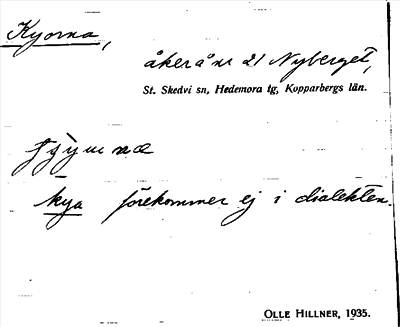 Kyorna,
åker å nr 21 Nyberget,
St. Skedvi sn, Hedemora tg, Kopparbergs län.
kya förekommer ej i dialekten.
OLLE HILLNER, 1935.